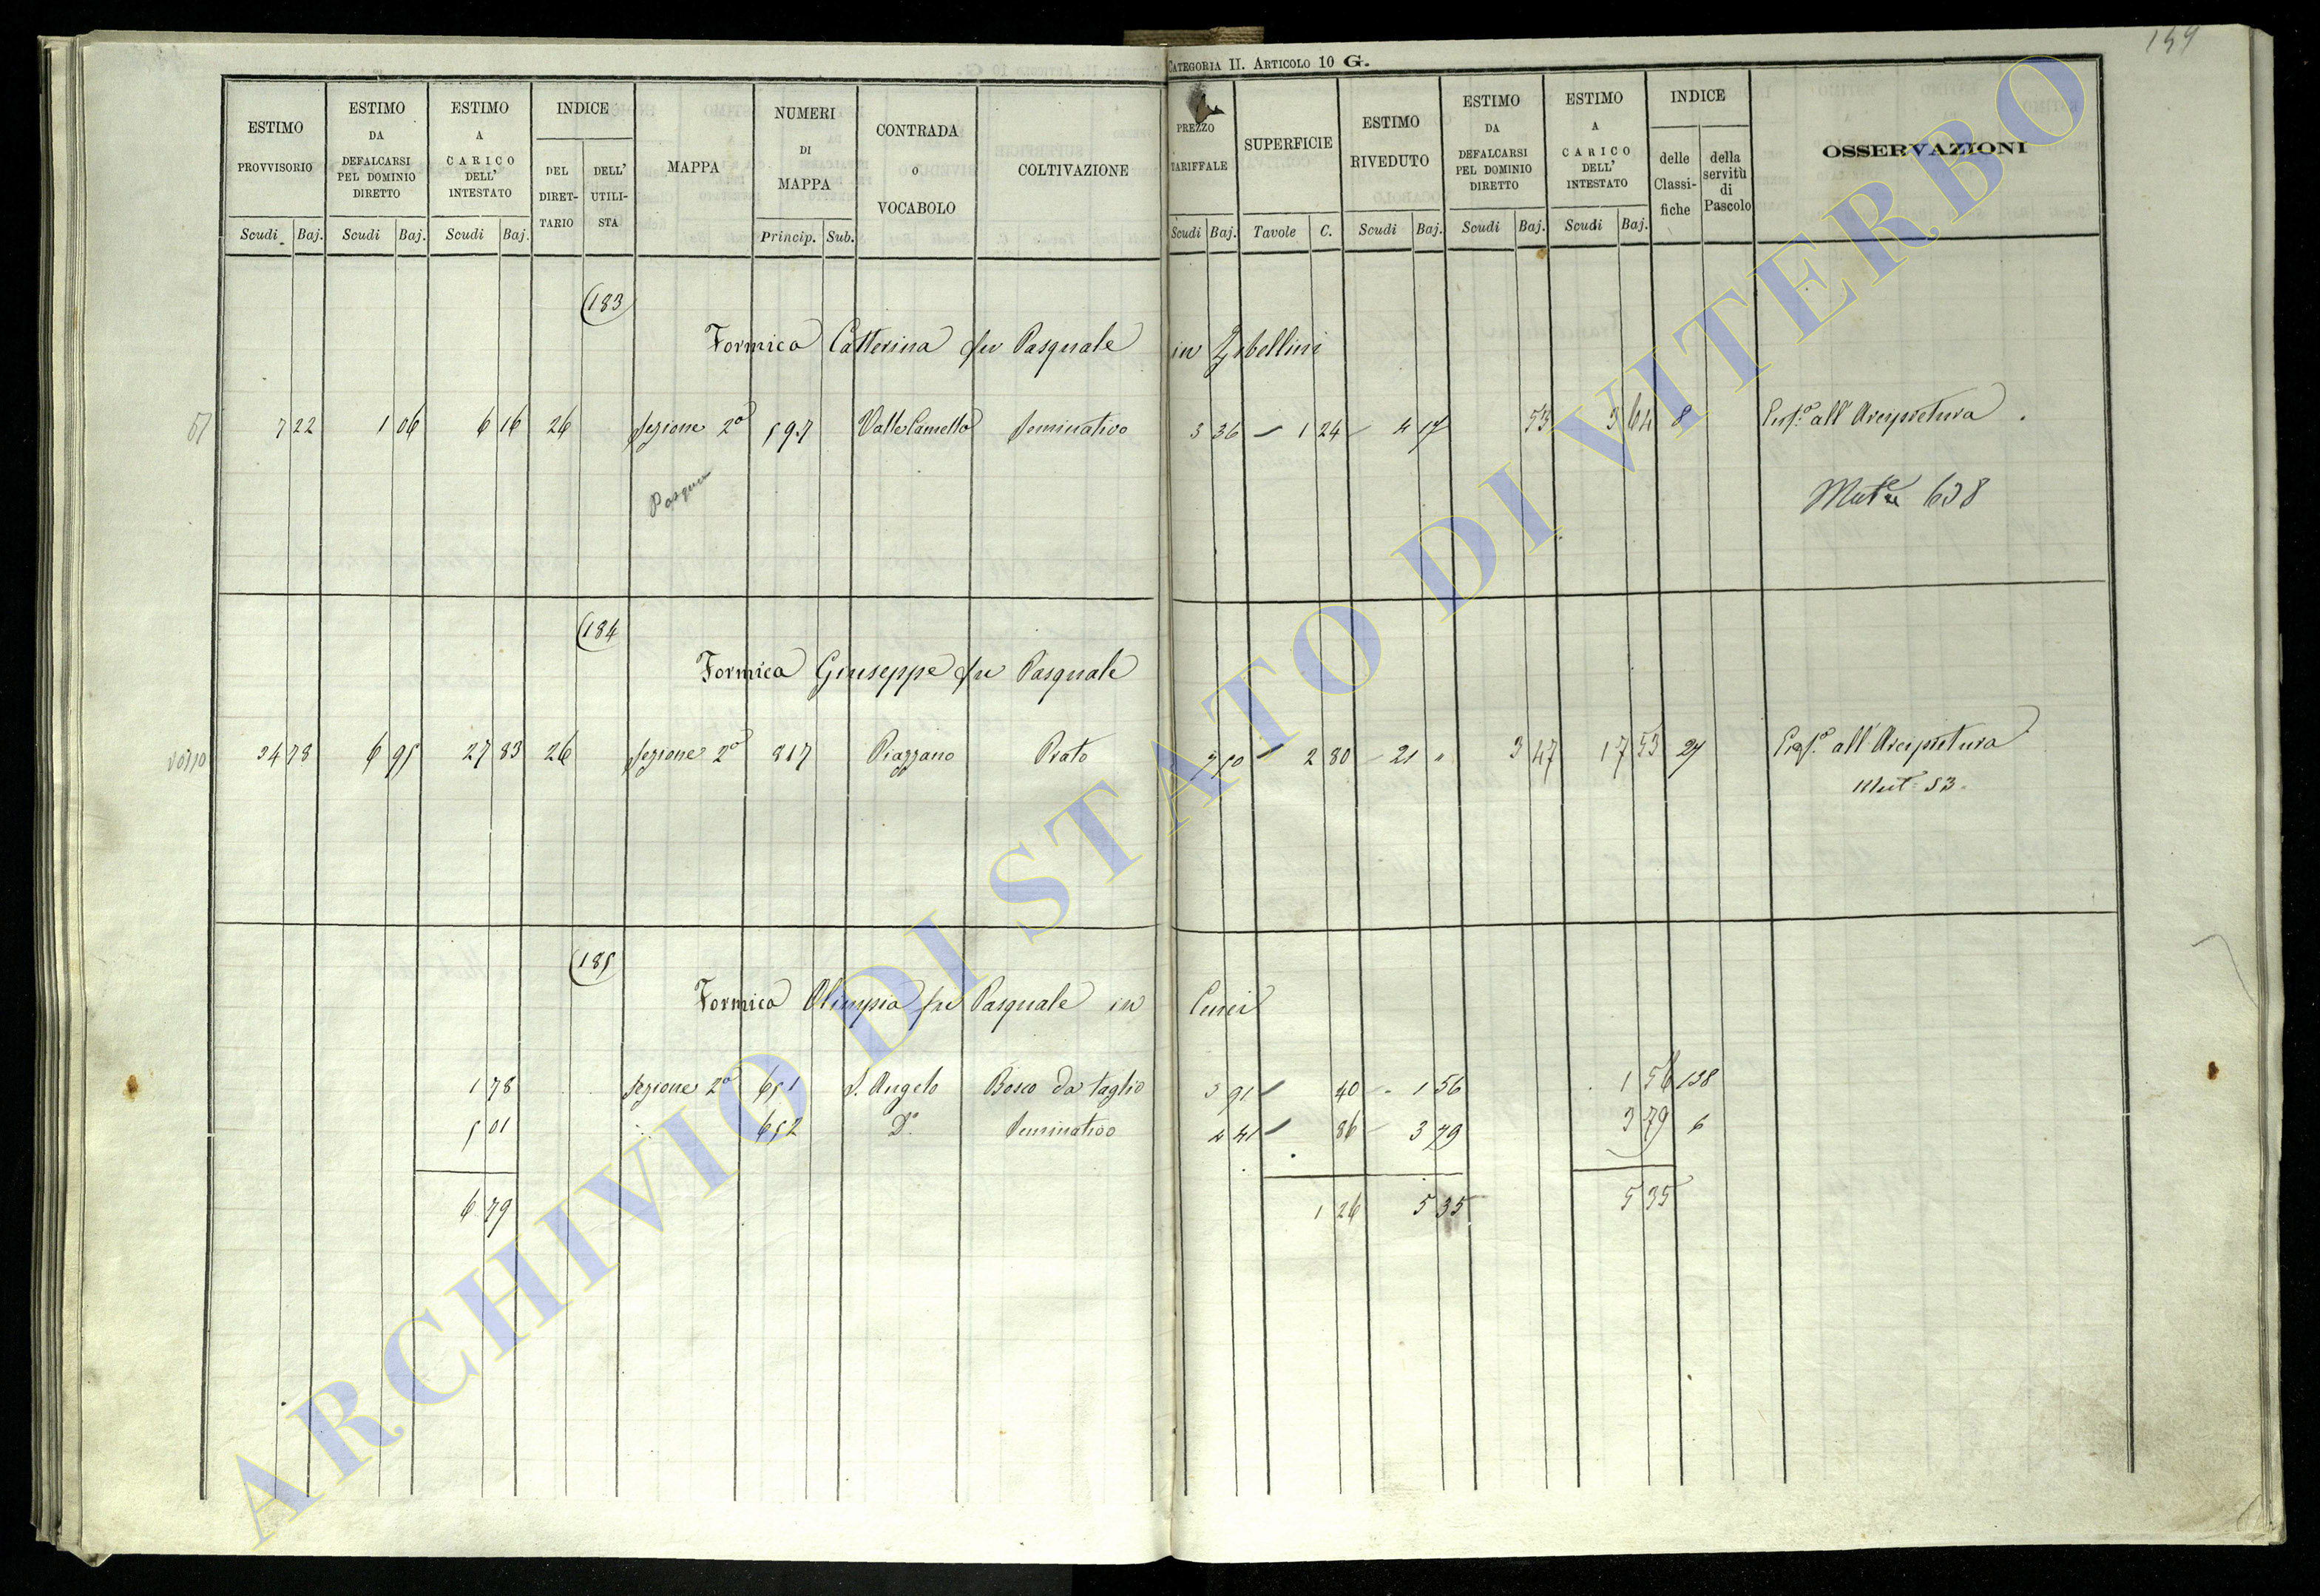 159
CATEGORIA II. ARTICOLO 10 G.
ESTIMO PROVVISORIO
ESTIMO DA DEFALCARSI PEL DOMINIO DIRETTO
ESTIMO A CARICO DELL' INTESTATO
INDICE
DEL DIRETTARIO
DELL' UTILISTA
MAPPA
NUMERI DI MAPPA
CONTRADA o VOCABOLO
COLTIVAZIONE
PREZZO TARIFFALE
SUPERFICIE
ESTIMO RIVEDUTO
ESTIMO DA DEFALCARSI PEL DOMINIO DIRETTO
ESTIMO A CARICO DELL' INTESTATO
INDICE
delle Classifiche
della servitù di Pascolo
OSSERVAZIONI
Scudi Baj. Scudi Baj. Scudi Baj. Princip. Sub. Scudi Baj. Tavole C. Scudi Baj. Scudi Baj. Scudi Baj.
183
Formica Catterina fu Pasquale in Zibellini
7 22 1 06 6 16 26 Sezione 2a 597 Valle Camella Seminativo 3 36 1 24 4 17 53 3 64 8 Enf.o all' Arcipretura
Mut.e 638
184
Formica Giuseppe fu Pasquale
34 78 6 95 27 83 26 Sezione 2a 817 Piazzano Prato 7 50 2 80 21 " 3 47 17 53 27 Enf.o all' Arcipretura
Mut. 53
185
Formica Olimpia fu Pasquale in Cenci
1 78 Sezione 2a 651 S. Angelo Bosco da taglio 3 91 40 1 56 1 56 138
5 01 652 D.o Seminativo 4 41 86 3 79 3 79 6
6 79 1 26 5 35 5 35
ARCHIVIO DI STATO DI VITERBO